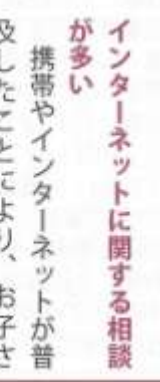 インターネットに関する相談
が多い
携帯やインターネットが普
及したことにより、お子さ